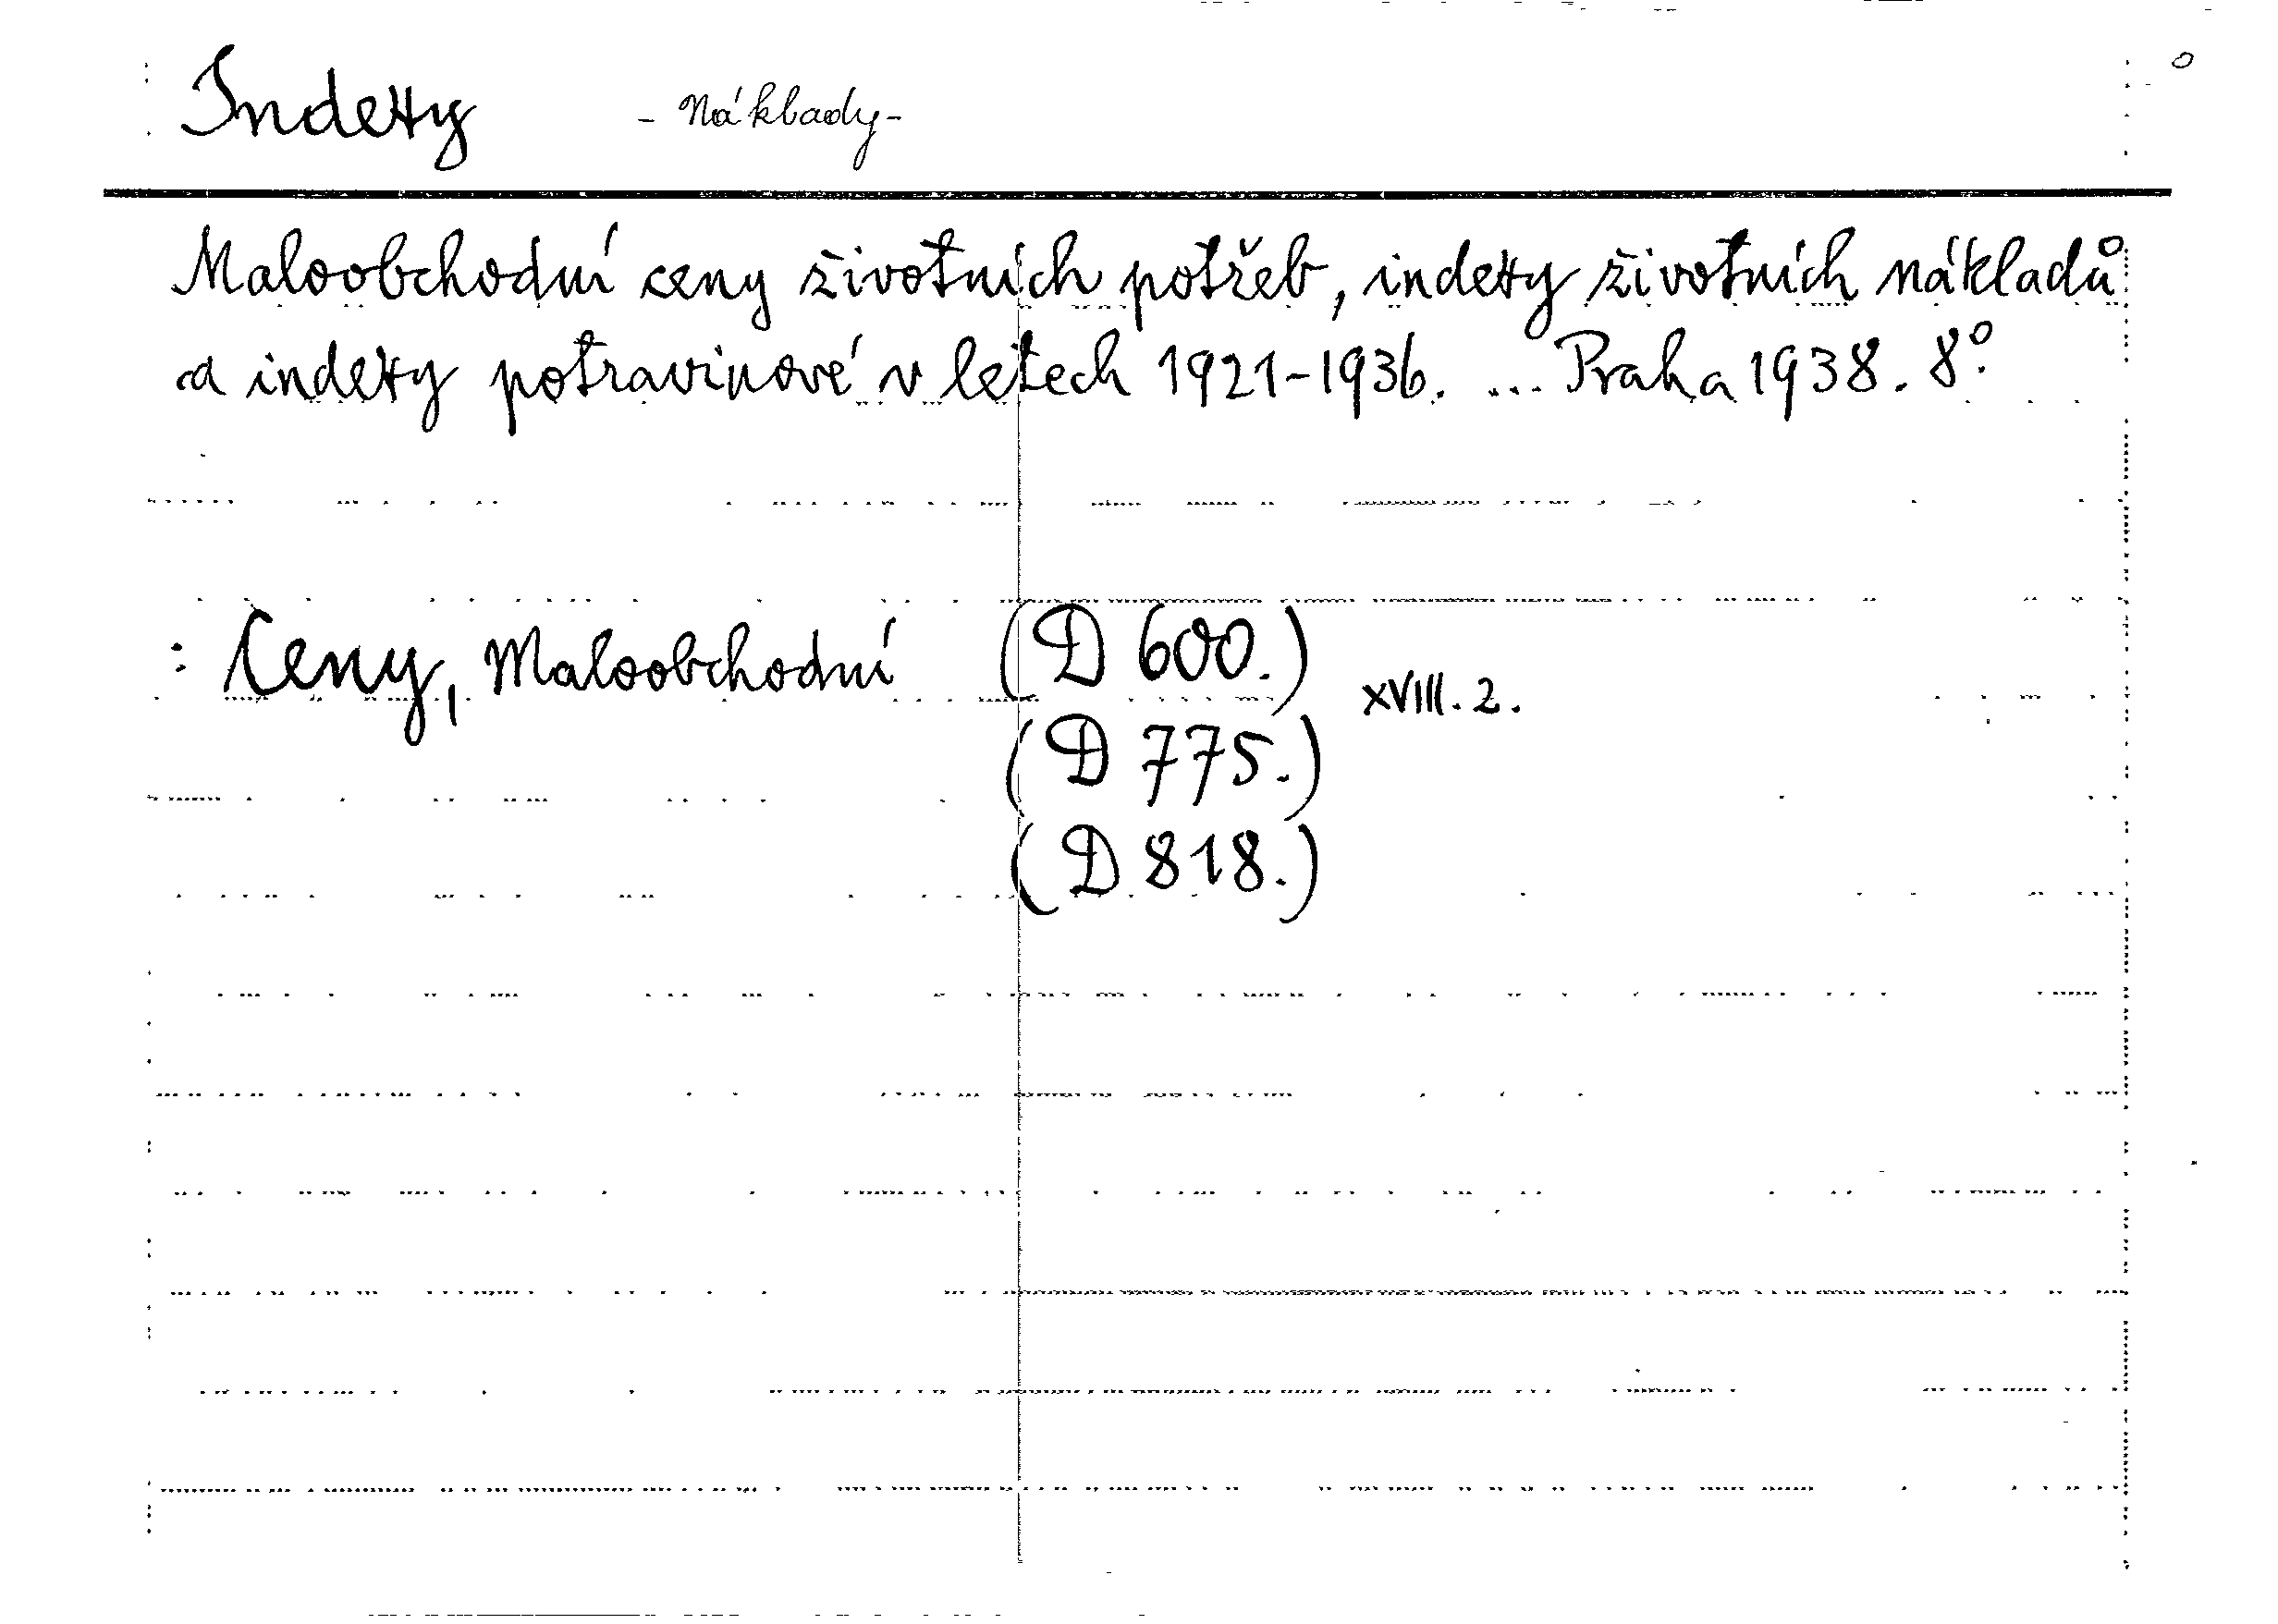 Indexy - Náklady -
Maloobchodní ceny životních potřeb, indexy životních nákladů
a indexy potravinové v letech 1921-1936. ... Praha 1938. 8°.
: Ceny, Maloobchodní (D 600.) XVIII. 2.
(D 775.)
(D 818.)